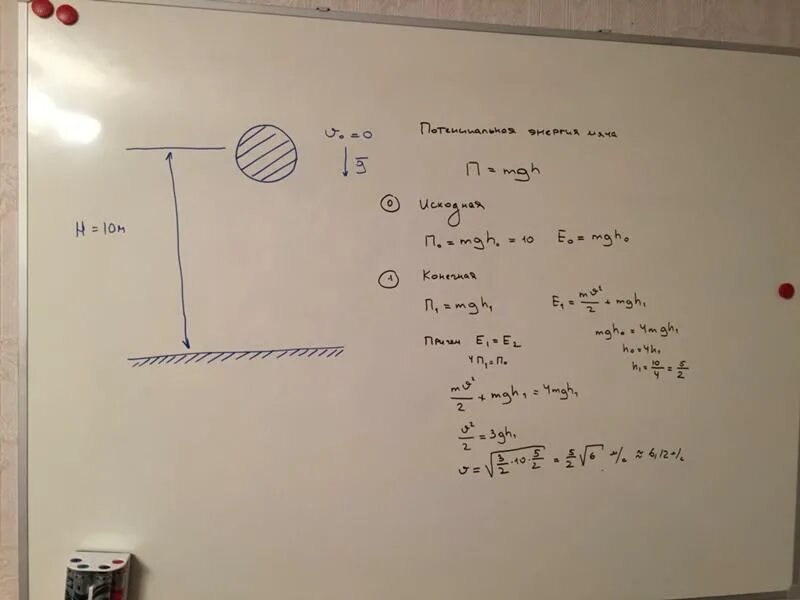 H = 10м
v₀ = 0
g̅
Потенциальная энергия мяча
П = mgh
0 Исходная
П₀ = mgh₀ = 10 E₀ = mgh₀
1 Конечная
П₁ = mgh₁ E₁ = mv²/2 + mgh₁
Причем E₁ = E₂
4П₁ = П₀
mgh₀ = 4mgh₁
h₀ = 4h₁
h₁ = 10/4 = 5/2
mv²/2 + mgh₁ = 4mgh₁
v²/2 = 3gh₁
v = √(3/2 · 10 · 5/2) = 5/2 √6 м/с ≈ 6,12 м/с